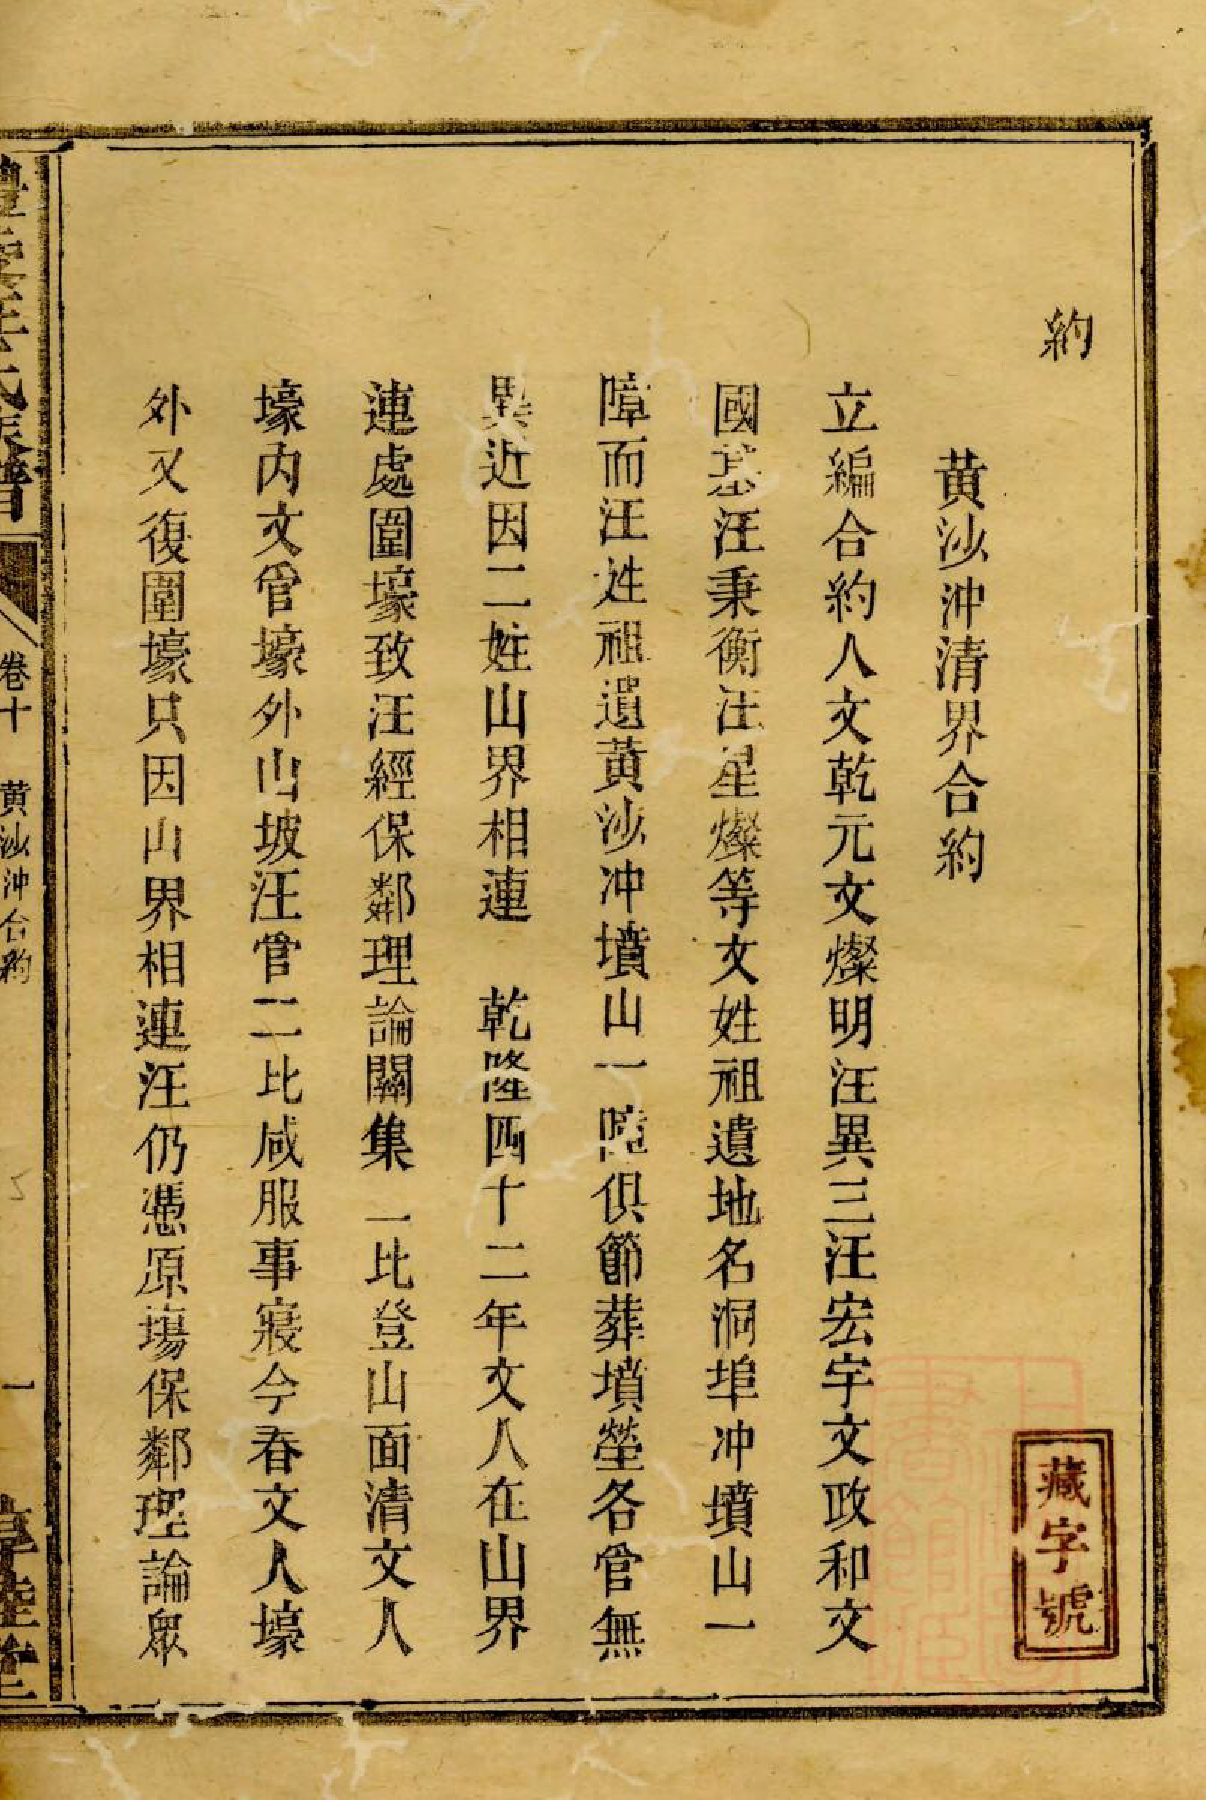 約
黄沙沖清界合約
立編合約人文乾元文燦明汪異三汪宏宇文政和文
國基汪秉衡汪星燦等文姓祖遺地名洞埠冲墳山一
障而汪姓祖遺黄沙冲墳山一障俱節葬墳塋各管無
異近因二姓山界相連 乾隆四十二年文人在山界
連處圍壕致汪經保鄰理論關集 二比登山面清文人
壕内文管壕外山坡汪管二比咸服事寢今春文人壕
外又復圍壕只因山界相連汪仍憑原塲保鄰理論眾
氏族譜
卷十 黄沙沖合約
一
敦睦堂
藏字號